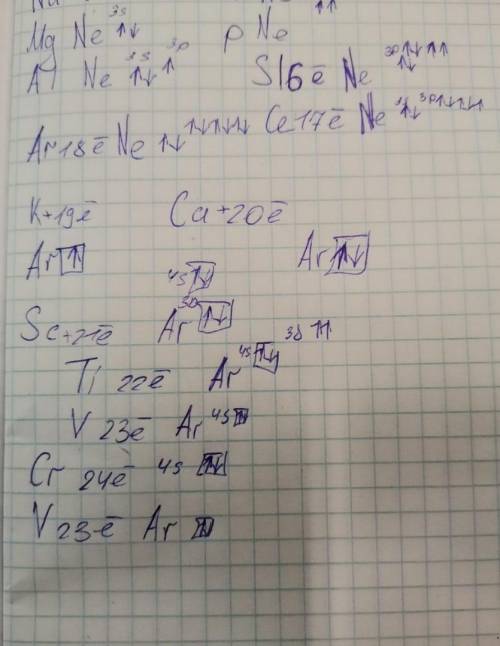 Na
Mg Ne 3s ↑↓ p Ne ↑↑
Al Ne 3s ↑↓ 3p ↑ S 16ē Ne 3p ↑↓ ↑↓ ↑ ↑
Ar 18ē Ne ↑↓ ↑↓ ↑↓ ↑↓ Ce 17ē Ne ↑↓ 3p ↑↓ ↑↓ ↑↓
K+19ē Ca +20ē
Ar ↑ Ar ↑↓
4s ↑↓
Sc+21ē Ar 3d ↑↓
Ti 22ē Ar 4s ↑↓ 3d ↑↑
V 23ē Ar 4s
Cr 24ē 4s ↑↓
V 23ē Ar ↑↓